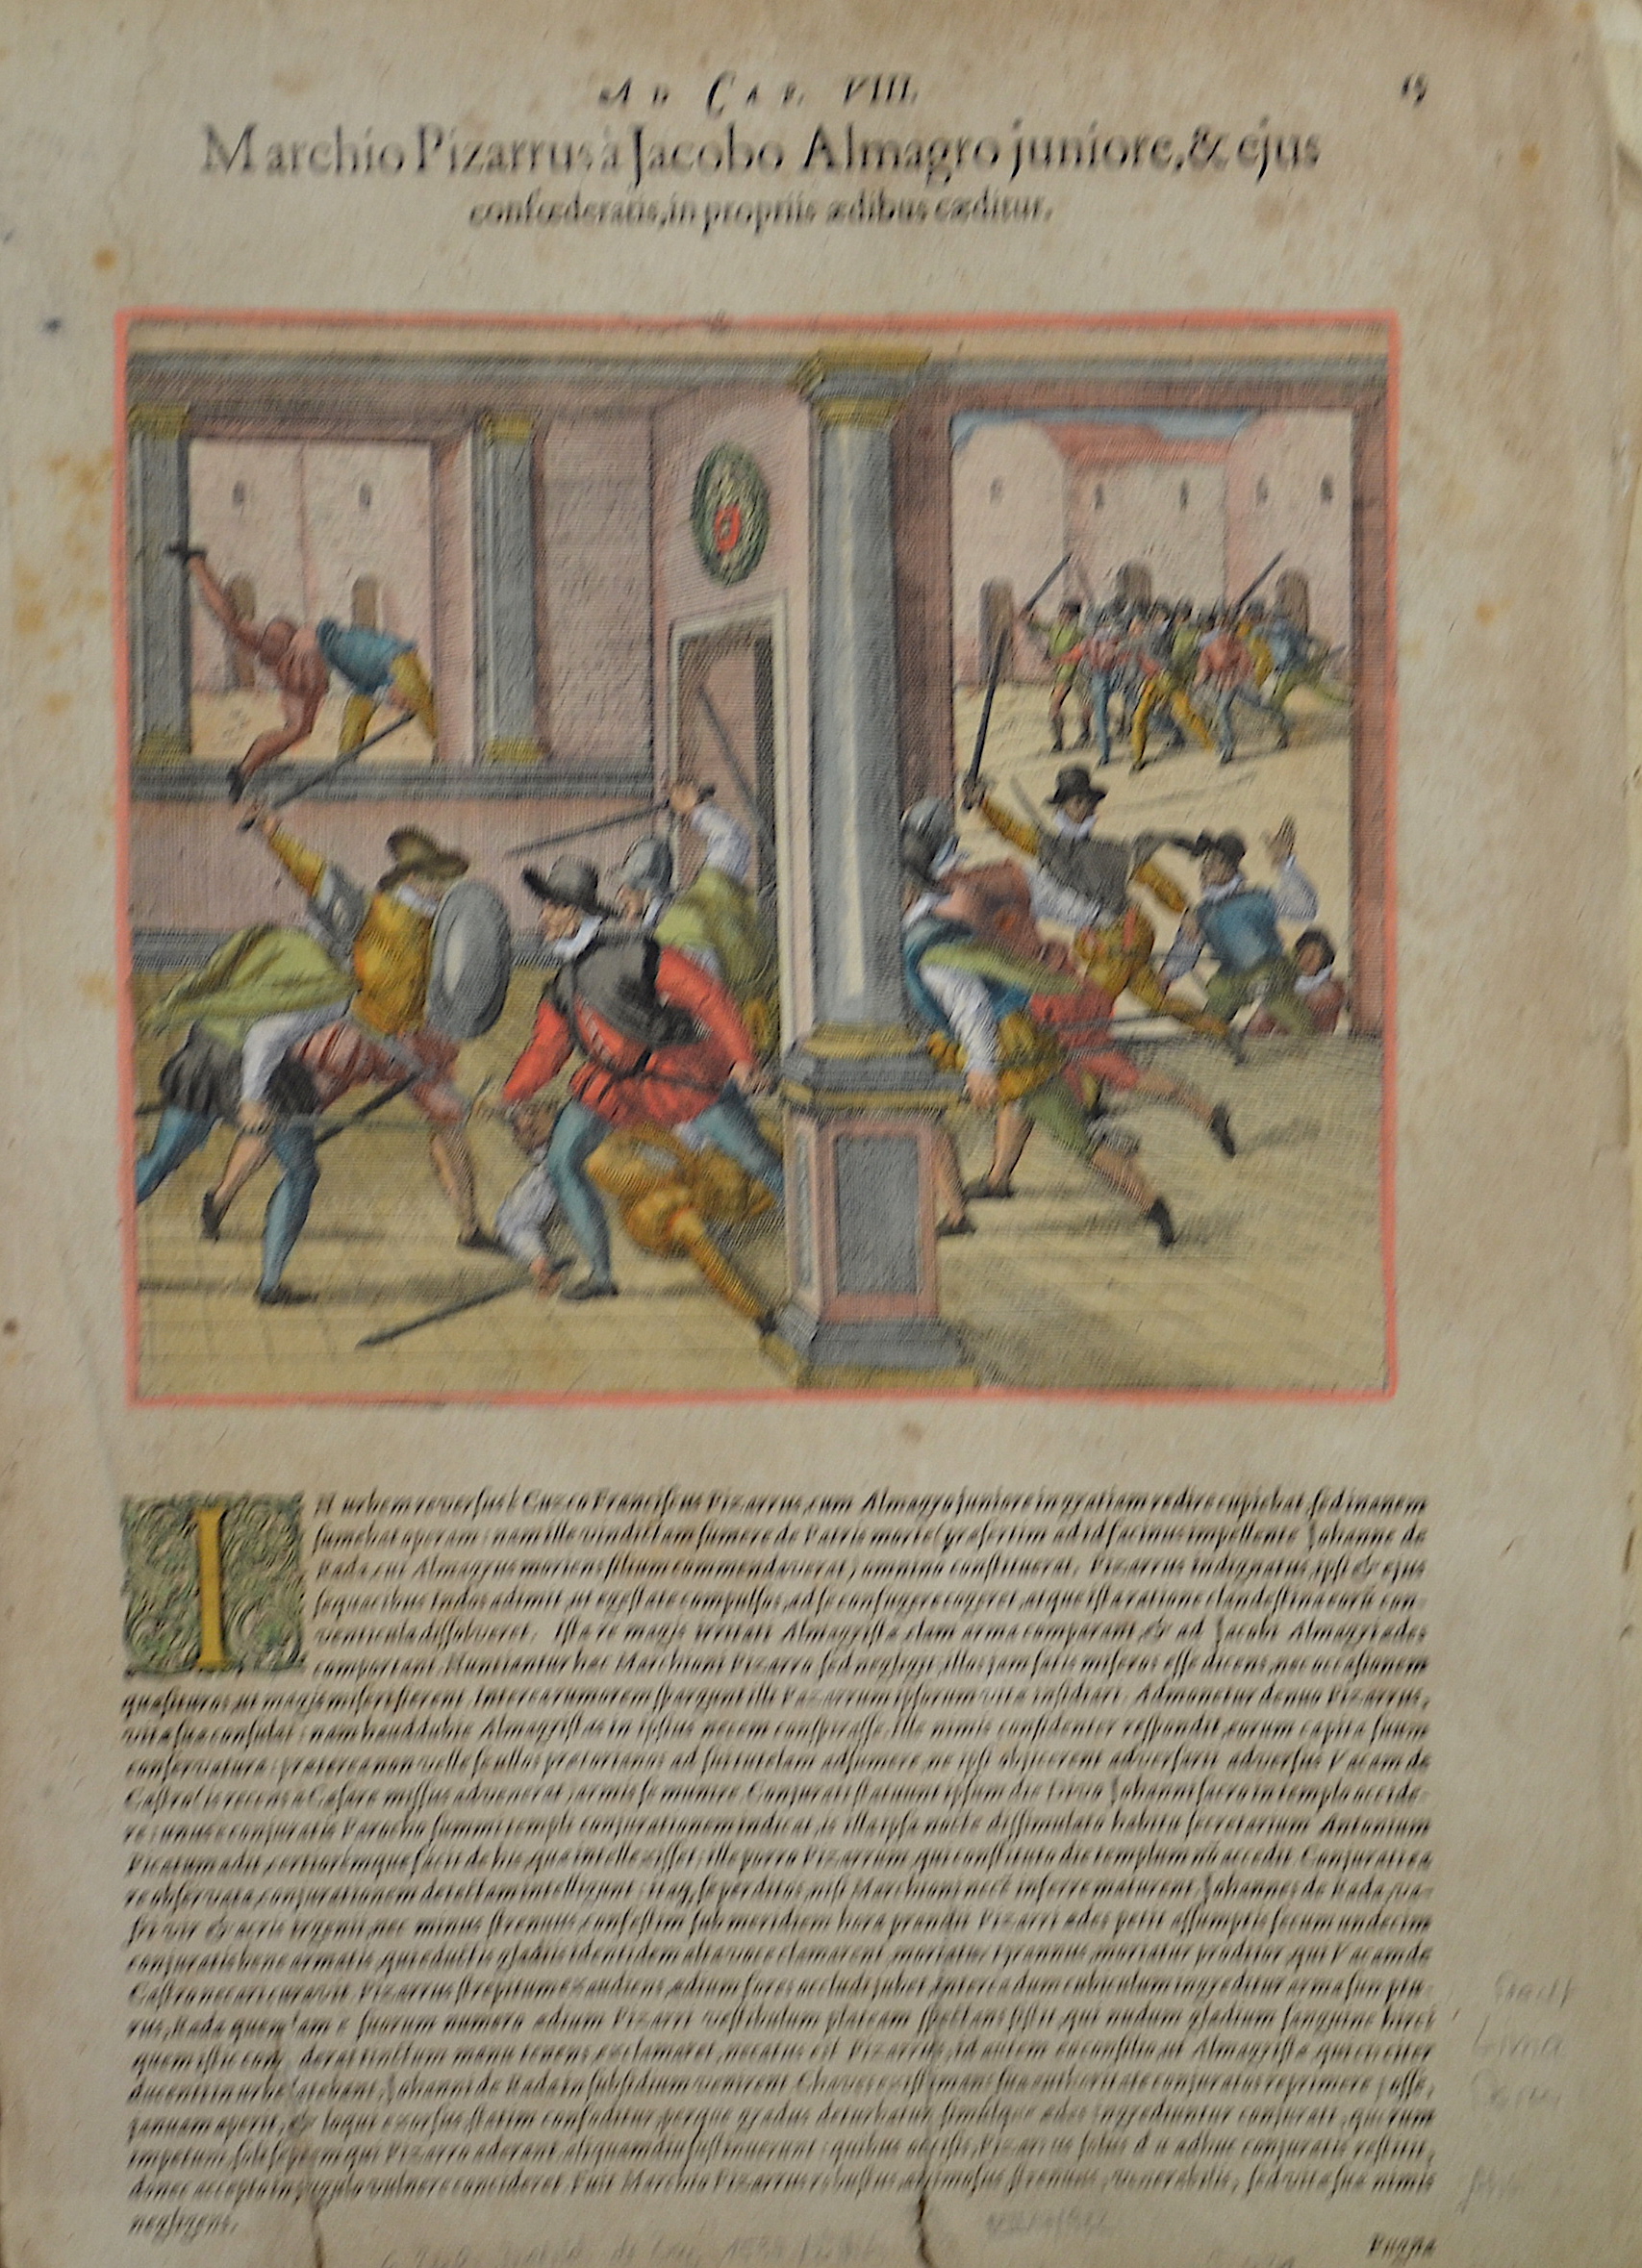 AD CAP. VIII. 15
Marchio Pizarrus à Jacobo Almagro juniore, & ejus
confœderatis, in propriis ædibus cæditur.
IN urbem reversus è Cuzco Franciſcus Pizarrus, cum Almagro juniore in gratiam redire cupiebat, ſed inanem
ſumebat operam: nam ille vindictam ſumere de Patris morte (præſertim ad id facinus impellente Johanne de
Rada, cui Almagrus moriens filium commendaverat) omnino conſtituerat. Pizarrus indignatus, ipſi & ejus
ſequacibus Indos adimit, ut egeſtate compulſos, ad ſe confugere cogeret, atque iſta ratione clandeſtina eorũ con-
venticula diſſolveret. Iſta re magis irritati Almagriſtæ, clam arma comparant, & ad Jacobi Almagri ædes
comportant. Nuntiantur hæc Marchioni Pizarro ſed negligit, illos jam ſatis miſeros eſſe dicens, nec occaſionem
quæſituros, ut magis miſeri fierent. Interea rumorem ſpargunt illi Pizarrum ipſorum vitæ inſidiari. Admonetur denuo Pizarrus,
vitæ ſuæ conſulat: nam haud dubie Almagriſtas in ipſius necem conſpiraſſe. Ille nimis confidenter reſpondit, eorum capita ſuum
conſervatura: præterea non velle ſe ullos prætorianos ad ſui tutelam adſumere, ne ipſi objicerent adverſarii adverſus Vacam de
Caſtro (is recens a Cæſare miſſus advenerat) armis ſe munire. Conjurati ſtatuunt ipſum die Divo Johanni ſacro in templo occide-
re: unus e conjuratis Parocho ſummi templi conjurationem indicat, is illa ipſa nocte diſſimulato habitu ſecretarium Antonium
Picatum adit, certioremque facit de his, quæ intellexiſſet: ille porro Pizarrum, qui conſtituto die templum nõ accedit. Conjurati ea
re obſervata, conjurationem detectam intelligunt: itaq; ſe perditos, niſi Marchioni necẽ inferre maturent. Johannes de Rada, va-
fer vir & acris ingenii, nec minus ſtrenuus, confeſtim ſub meridiem hora prandii Pizarri ædes petit aſſumptis ſecum undecim
conjuratis bene armatis, qui eductis gladiis identidem alta voce clamarent, moriatur tyrannus, moriatur proditor, qui Vacam de
Caſtro necari curavit. Pizarrus ſtrepitum exaudiens, ædium fores occludi jubet. Interea dum cubiculum ingreditur arma ſumptu-
rus, Rada quendam e ſuorum numero ædium Pizarri veſtibulum plateam ſpectans ſiſtit, qui nudum gladium ſanguine hirci
tinctum manu tenens, exclamaret, necatus eſt Pizarrus, id autem eo conſilio, ut Almagriſtæ, qui circiter
ducenti in urbe latebant, Johanni de Rada in ſubſidium venirent. Chaves exiſtimans ſua authoritate conjuratos reprimere poſſe,
januam aperit, & loqui exorſus, ſtatim confoditur, perque gradus deturbatur, ſimulque ædes ingrediuntur conjurati, quorum
impetum, ſoli ſeptem qui Pizarro aderant, aliquamdiu ſuſtinuerunt: quibus occiſis, Pizarrus ſolus diu adhuc conjuratis reſtitit,
donec accepto in jugulo vulnere concideret. Fuit Marchio Pizarrus robuſtus, animoſus, ſtrenuus, venerabilis, ſed vitæ ſuæ nimis
negligens.
Pugna